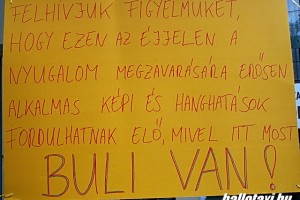 FELHÍVJUK FIGYELMÜKET,
HOGY EZEN AZ ÉJJELEN A
NYUGALOM MEGZAVARÁSÁRA ERŐSEN
ALKALMAS KÉPI ÉS HANGHATÁSOK
FORDULHATNAK ELŐ, MIVEL ITT MOST
BULI VAN!
ballotavi.hu